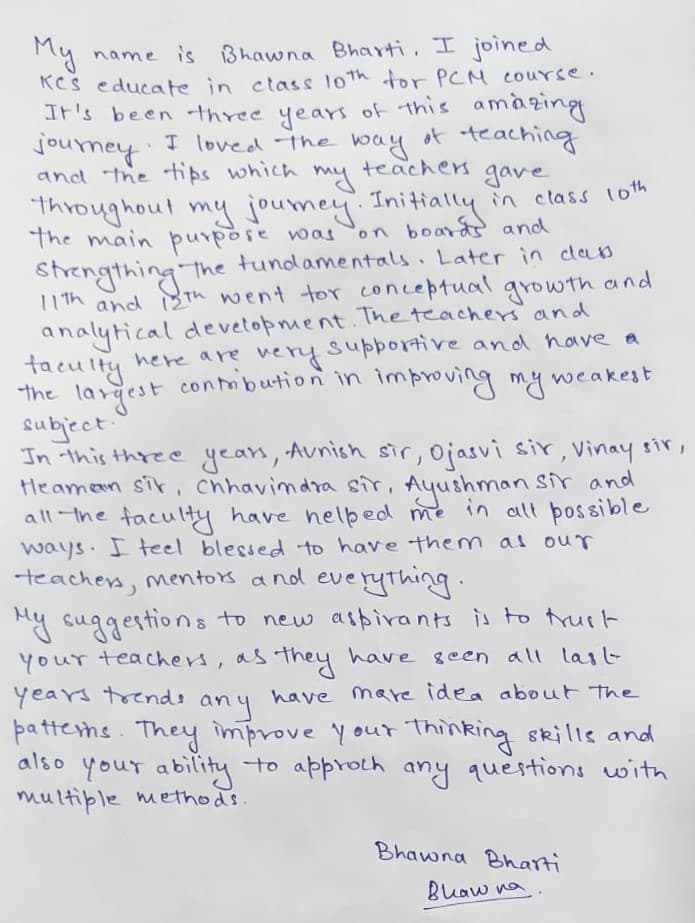 My name is Bhawna Bharti. I joined
KCS educate in class 10th for PCM course.
It's been three years of this amazing
journey. I loved the way of teaching
and the tips which my teachers gave
throughout my journey. Initially in class 10th
the main purpose was on boards and
strengthing the fundamentals. Later in class
11th and 12th went for conceptual growth and
analytical development. The teachers and
faculty here are very supportive and have a
the largest contribution in improving my weakest
subject.
In this three years, Avnish sir, Ojasvi sir, Vinay sir,
Heaman sir, Chhavimdra sir, Ayushman sir and
all the faculty have helped me in all possible
ways. I feel blessed to have them as our
teachers, mentors and everything.
My suggestions to new aspirants is to trust
your teachers, as they have seen all last
years trends any have more idea about the
patterns. They improve your thinking skills and
also your ability to approch any questions with
multiple methods.
Bhawna Bharti
Bhawna.